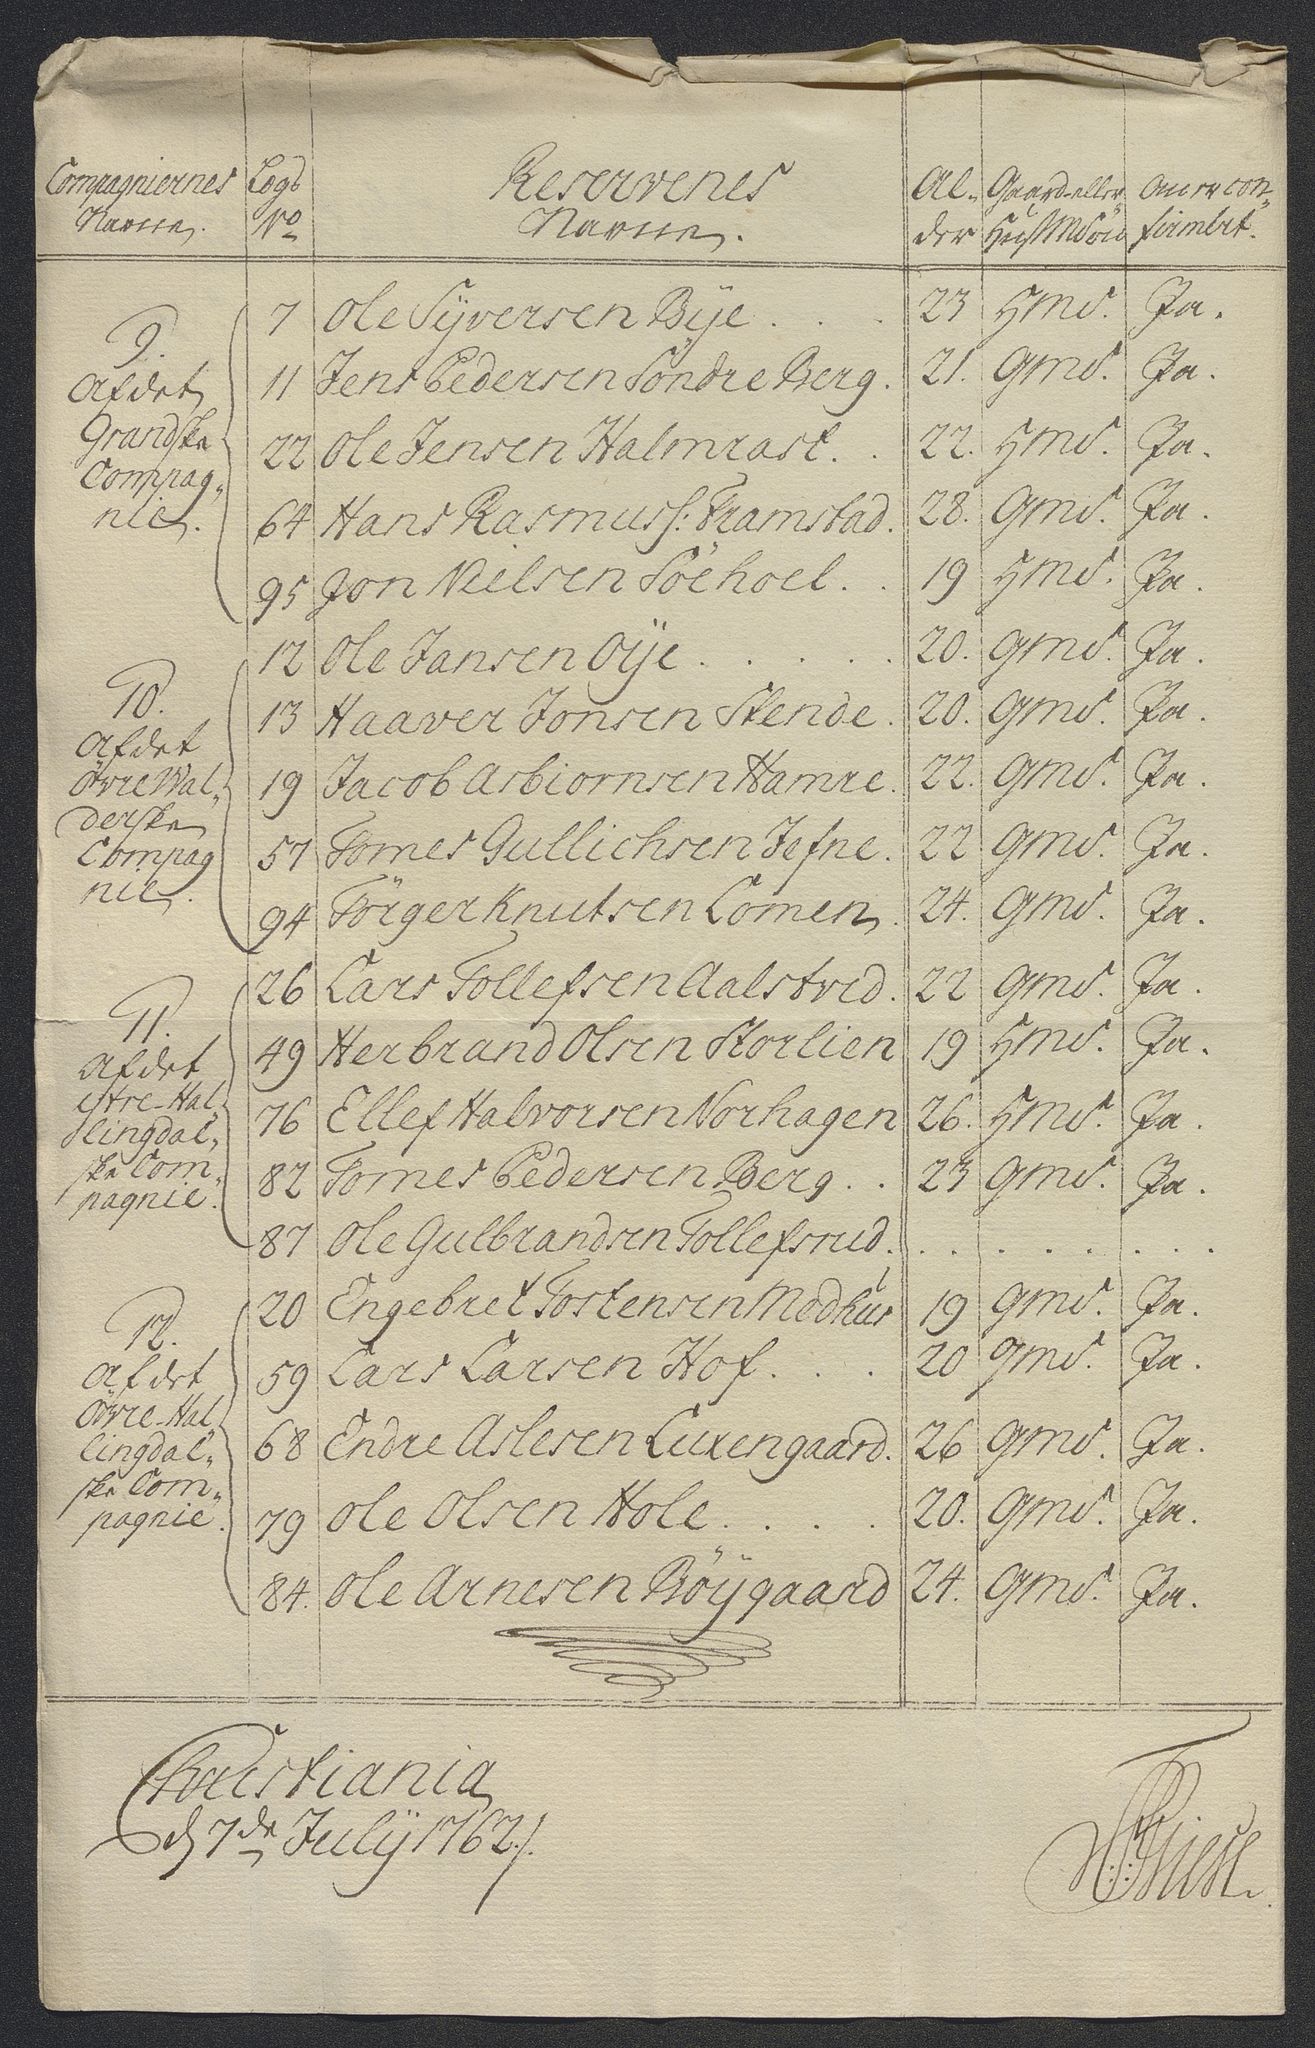 Compagniernes Navne. | Legs No | Reservenes Navne. | Al-der | Gaard-eller HusMdSön | Om er con-firmert.
9. Af det Grandske Compag-nie.
7 | Ole Syversen Bye . . . | 23 | HmS. | Ja.
11 | Jens Pedersen Söndre Berg. | 21. | GmS. | Ja.
22 | Ole Jensen Halmrast. . | 22. | HmS. | Ja.
64 | Hans Rasmuss: Framstad. | 28. | GmS. | Ja.
95 | Jon Nielsen Söehoel. . | 19 | HmS. | Ja.
10. Af det Övre Wal-derske Compag nie.
12 | Ole Jansen Öye . . . . . | 20. | GmS. | Ja.
13 | Haaver Jonsen Skende. | 20. | GmS. | Ja.
19 | Jacob Asbiornsen Hamre. | 22. | GmS. | Ja.
57 | Tomes Gullichsen Jefne. | 22 | GmS. | Ja.
94 | Törger Knutsen Lomen. | 24. | GmS. | Ja.
11. Af det ytre-Hal-lingdal-ske Com-pagnie.
26 | Lars Tollefsen Aalstved. | 22 | GmS. | Ja.
49 | Herbrand Olsen Storlien | 19 | HmS. | Ja.
76 | Ellef Halvorsen Norhagen | 26. | HmS. | Ja.
82 | Tomes Pedersen Berg. . | 23 | GmS. | Ja.
87 | Ole Gulbrandsen Tollefsrud. | . . . . . . . .
12. Af det Övre-Hal-lingdal-ske Com-pagnie.
20 | Engebret Tostensen Medhus | 19 | GmS. | Ja.
59 | Lars Larsen Hof. . . | 20 | GmS. | Ja.
68 | Endre Aslesen Luxengaard. | 26 | GmS. | Ja.
79 | Ole Olsen Hole. . . . | 20. | GmS. | Ja.
84. | Ole Arnesen Böygaard | 24. | GmS. | Ja.
Christiania
d 7de July 1762.